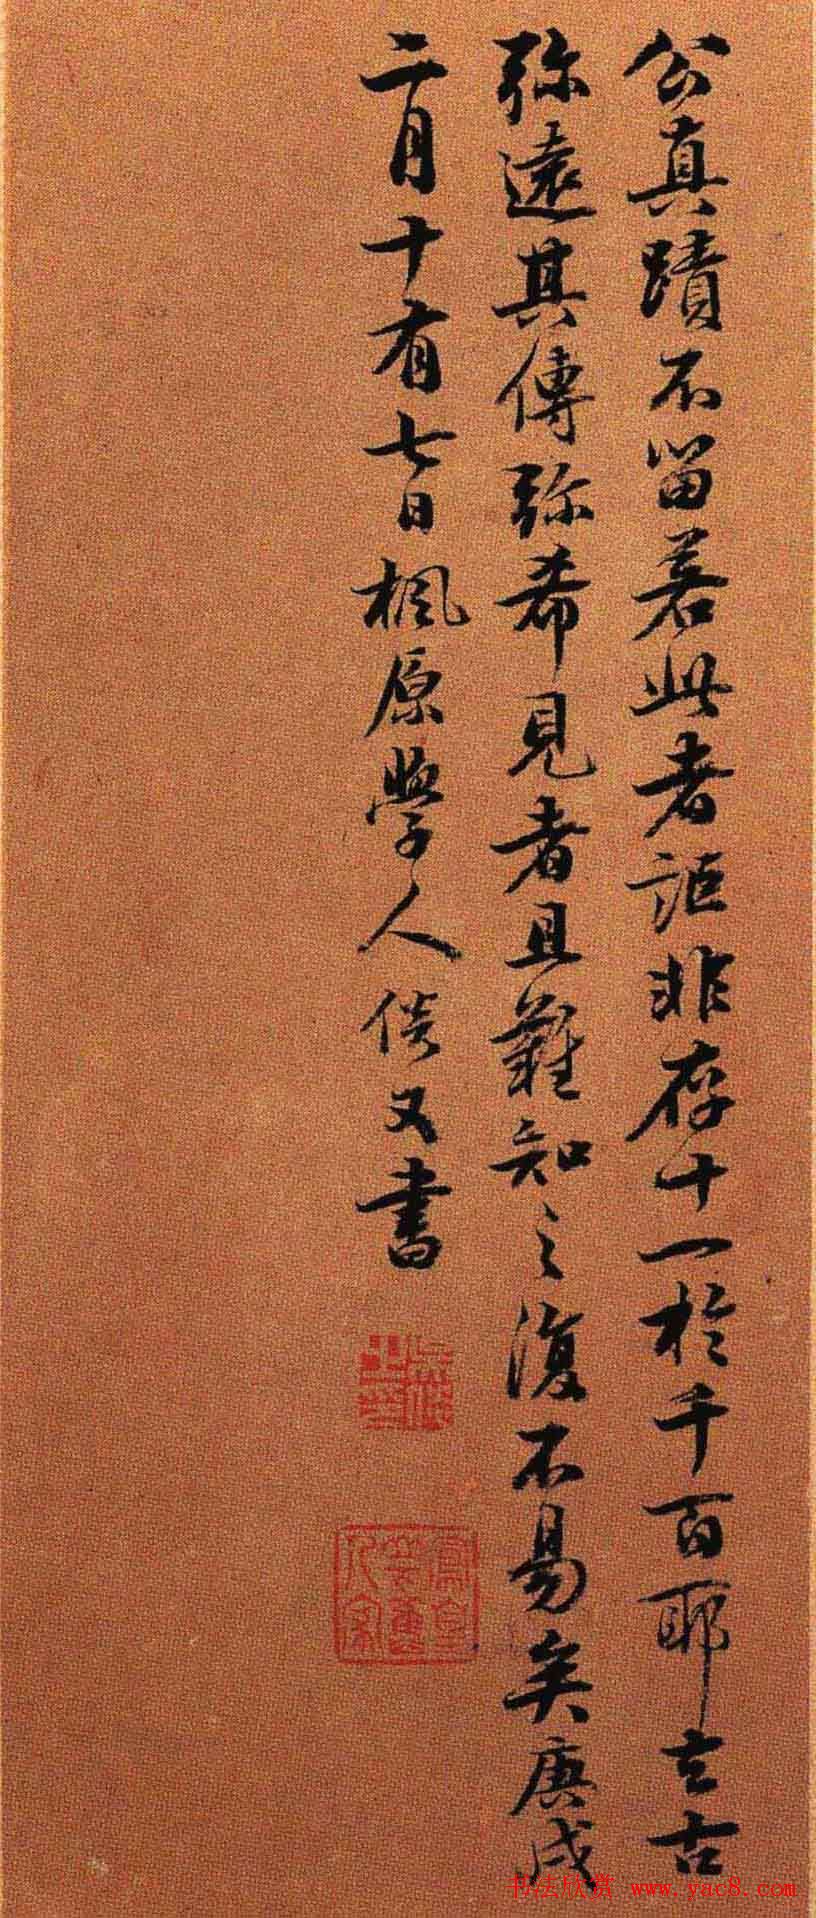 公真蹟不留若此者詎非存十一於千百耶去古
弥遠其傳弥希見者且難知之復不易矣庚戌
二月十有七日楓原學人俊又書
书法欣赏 www.yac8.com